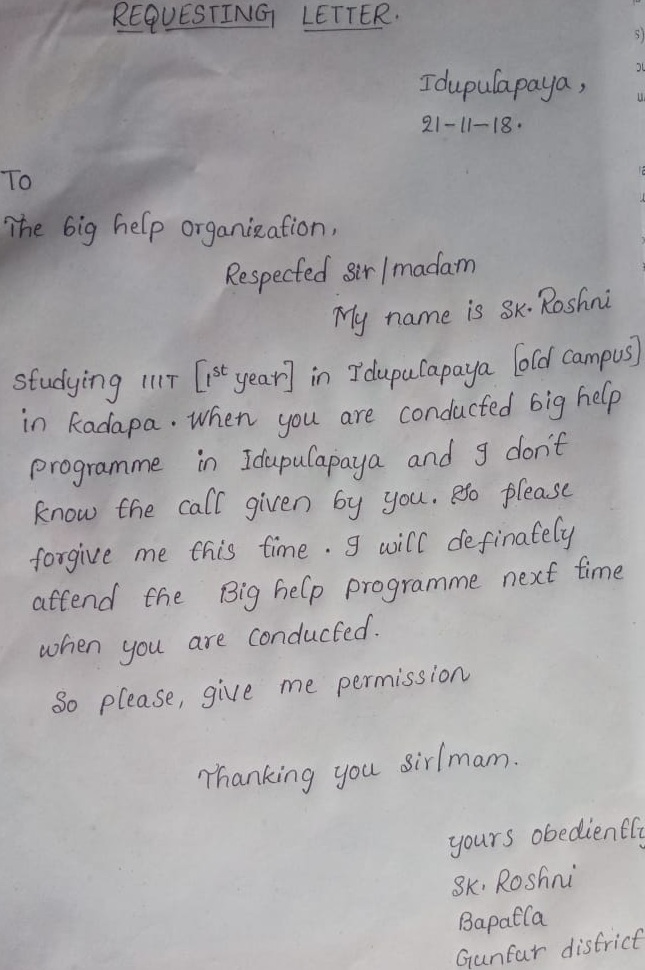 REQUESTING LETTER.
Idupulapaya,
21-11-18.
To
The big help organization,
Respected sir/madam
My name is SK. Roshni
studying IIIT [1st year] in Idupulapaya [old campus]
in kadapa. When you are conducted big help
programme in Idupulapaya and I don't
know the call given by you. So please
forgive me this time. I will definately
attend the Big help programme next time
when you are conducted.
So please, give me permission
Thanking you sir/mam.
yours obediently
SK. Roshni
Bapatla
Guntur district